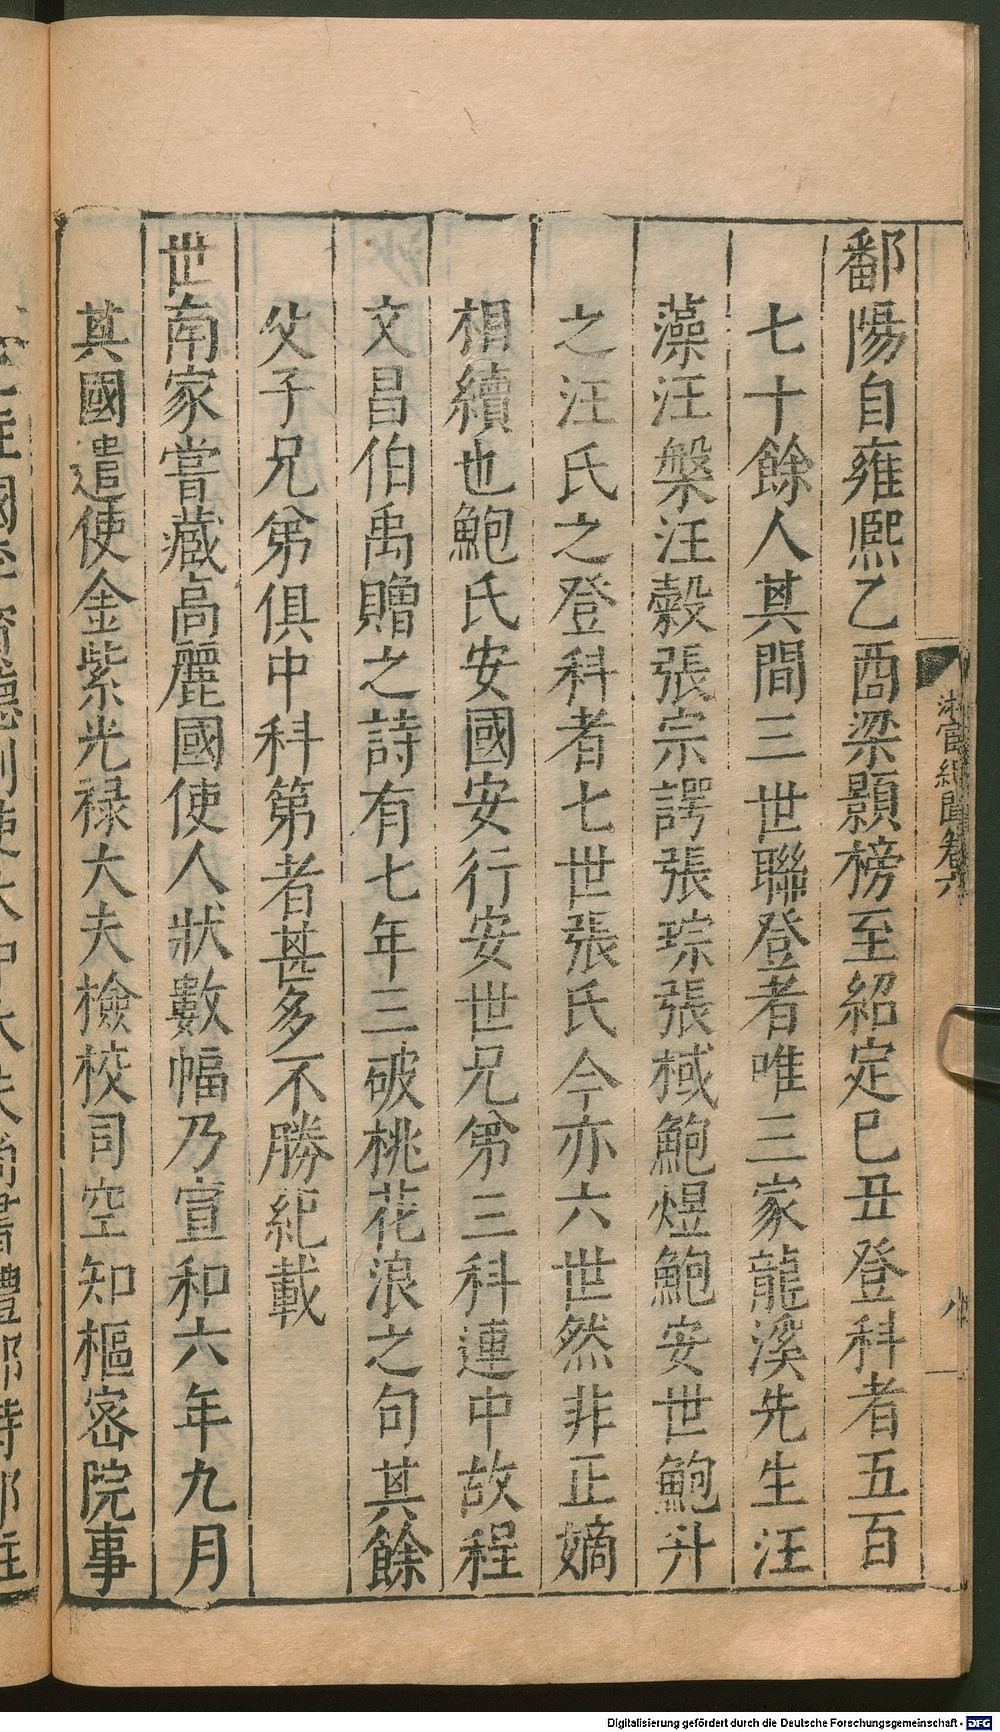 鄱陽自雍熙乙酉梁顥榜至紹定巳丑登科者五百
七十餘人其間三世聯登者唯三家龍溪先生汪
藻汪槃汪穀張宗諤張琮張棫鮑焜鮑安世鮑升
之汪氏之登科者七世張氏今亦六世然非正嫡
相續也鮑氏安國安行安世兄弟三科連中故程
文昌伯禹贈之詩有七年三破桃花浪之句其餘
父子兄弟俱中科第者甚多不勝紀載
世南家嘗藏高麗國使人狀數幅乃宣和六年九月
其國遣使金紫光禄大夫檢校司空知樞密院事
官紀聞卷六
八
Digitalisierung gefördert durch die Deutsche Forschungsgemeinschaft - DFG